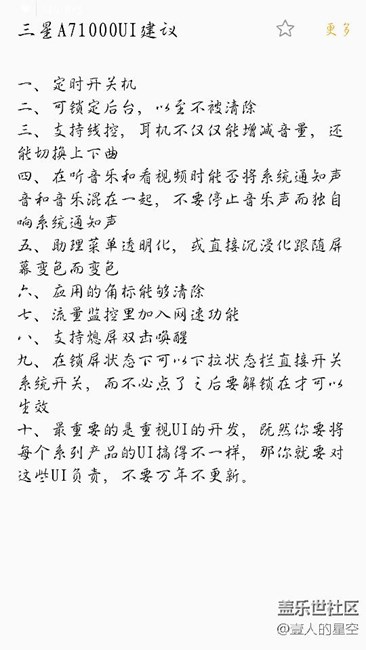 三星A71000UI建议
更多
一、定时开关机
二、可锁定后台，以至不被清除
三、支持线控，耳机不仅仅能增减音量，还
能切换上下曲
四、在听音乐和看视频时能否将系统通知声
音和音乐混在一起，不要停止音乐声而独自
响系统通知声
五、助理菜单透明化，或直接沉浸化跟随屏
幕变色而变色
六、应用的角标能够清除
七、流量监控里加入网速功能
八、支持熄屏双击唤醒
九、在锁屏状态下可以下拉状态栏直接开关
系统开关，而不必点了之后要解锁在才可以
生效
十、最重要的是重视UI的开发，既然你要将
每个系列产品的UI搞得不一样，那你就要对
这些UI负责，不要万年不更新。
盖乐世社区
@壹人的星空